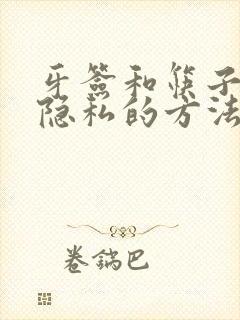 牙签和筷子
隐私的方法
卷锅巴